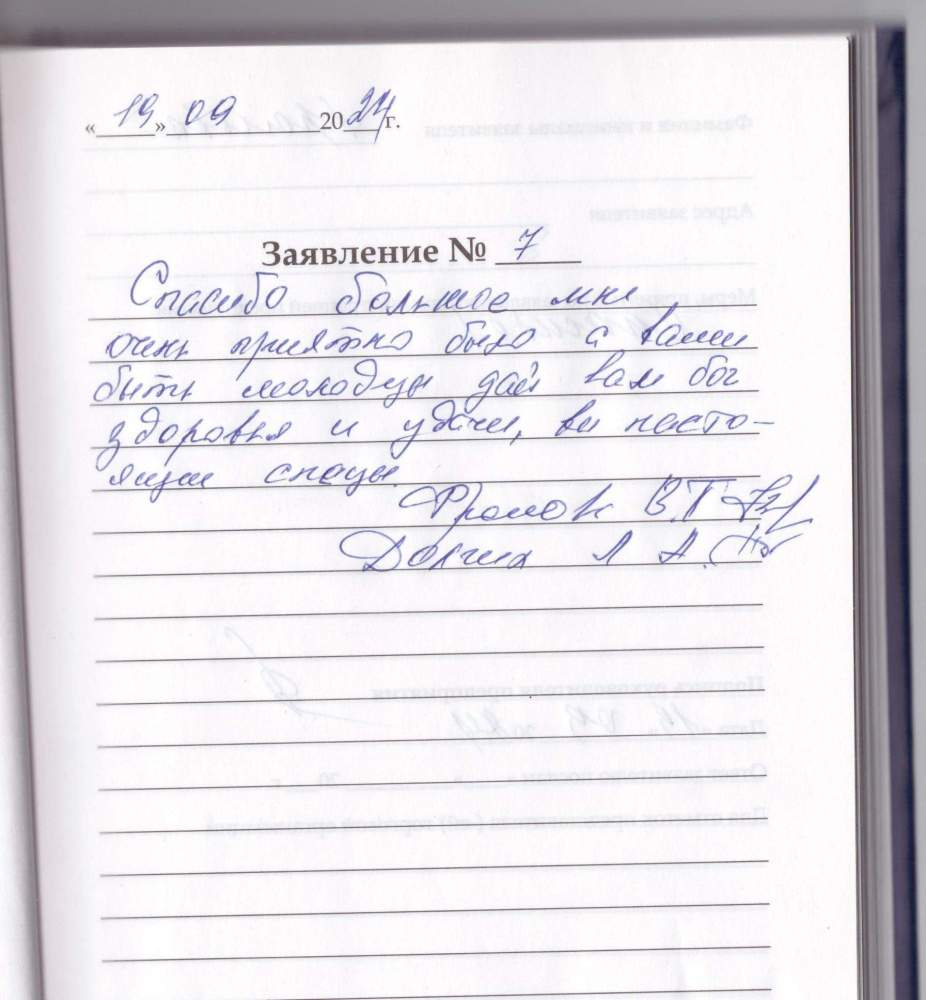 «19» 09 2024 г.
Заявление № 7
Спасибо большое мне
очень приятно было с вами
быть молодцы дай вам бог
здоровья и удачи, вы насто-
ящи спецы
Фролов В.Г.
Долгих Л А.